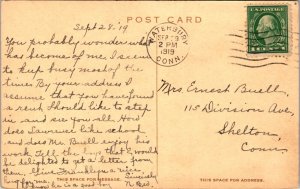 Sept 28. '19
POST CARD
You probably wonder what
has become of me. I seem
to keep busy most of the
time By your address I
assume that you have found
a rent Should like to step
in and see you all How
does Laurence like school
and does Mr. Buell enjoy his
work Tell the boys that I would
be delighted to get a letter from
them. Give Franklyn a nice
hug for me.
he is a
THIS SPACE FOR MESSAGE.
WATERBURY
SEP 29
2 PM
1919
CONN.
U.S. POSTAGE
Mrs Ernest Buell
115 Division Ave,
Shelton
Conn
THIS SPACE FOR ADDRESS.